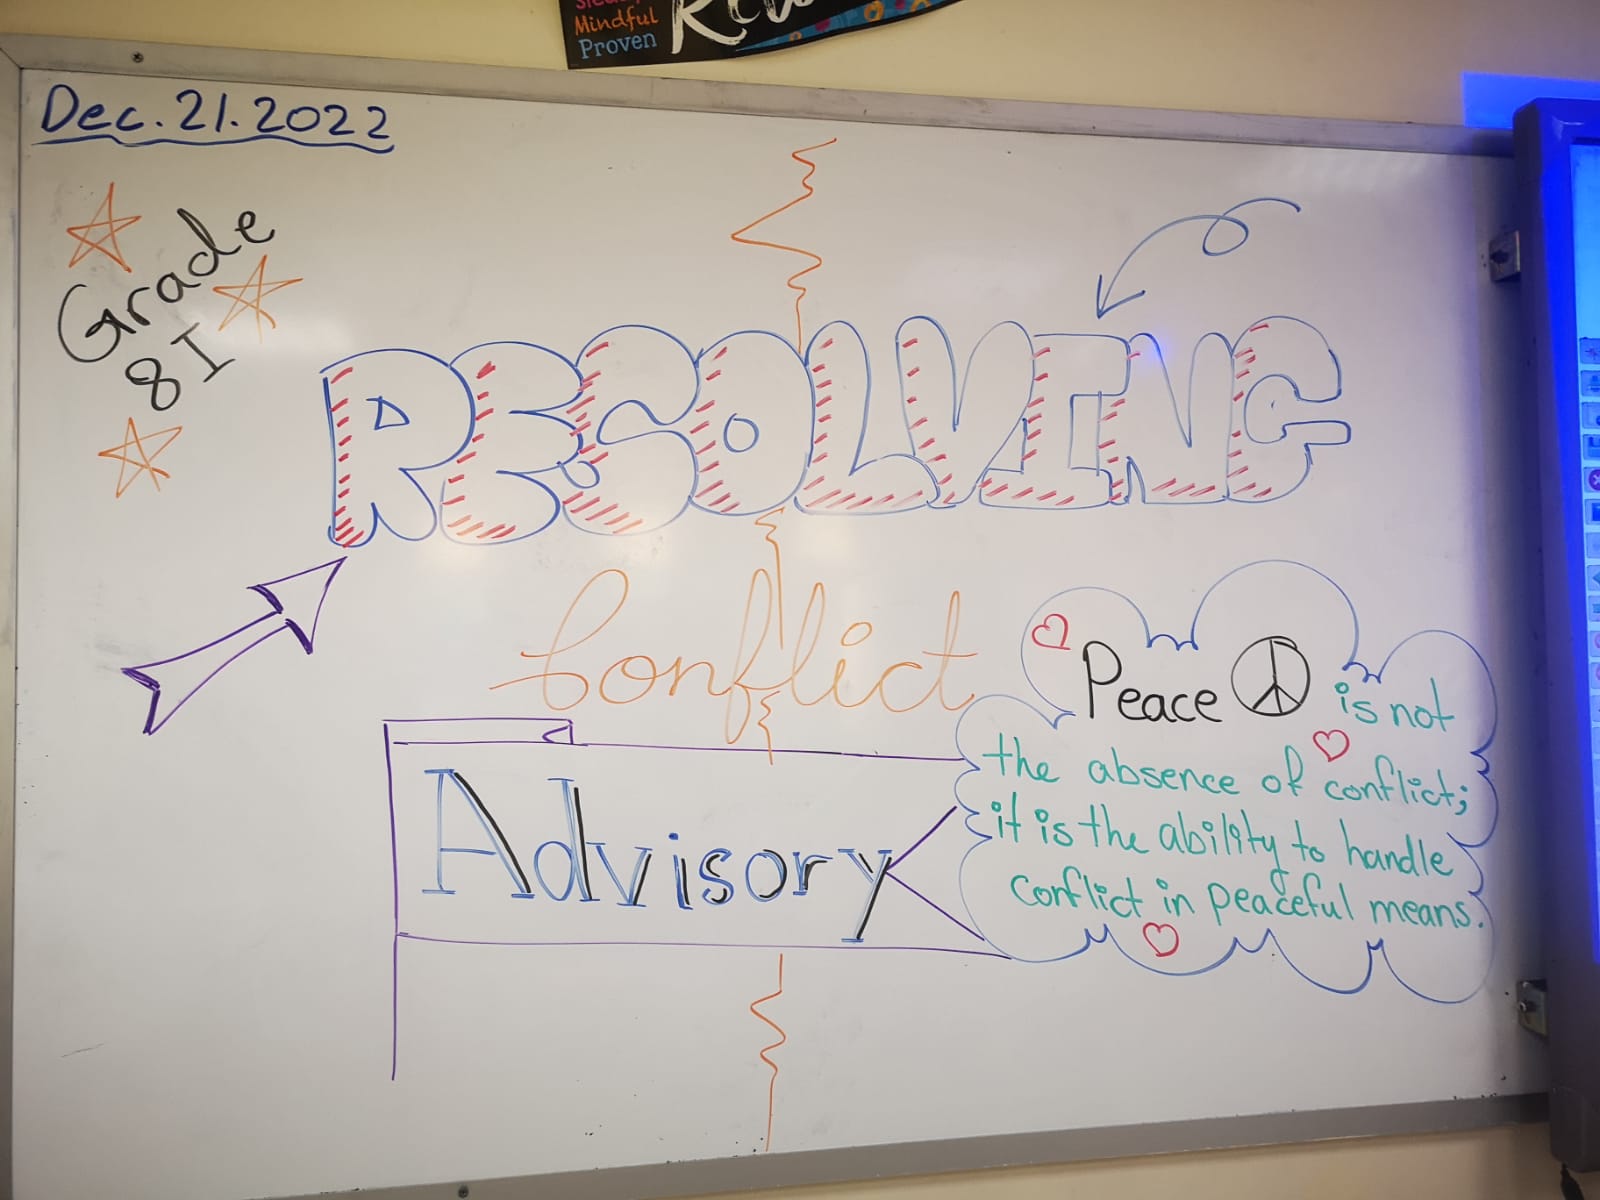 Mindful
Proven
Dec. 21. 2022
Grade
8 I
RESOLVING
Conflict
Advisory
Peace is not
the absence of conflict;
it is the ability to handle
conflict in peaceful means.